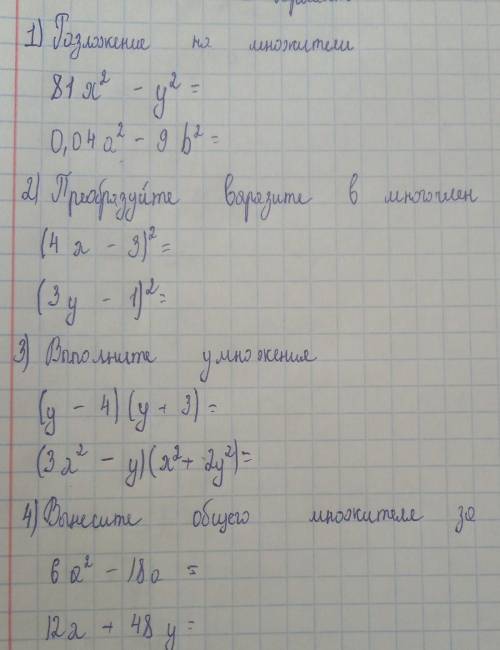 1) Разложение на множители
81x² - y² =
0,04a² - 9b² =
2) Преобразуйте варазите в многочлен
(4x - 3)² =
(3y - 1)² =
3) Выполните умножения
(y - 4)(y + 3) =
(3x² - y)(x² + 2y²) =
4) Вынесите общего множителя за
6a² - 18a =
12x + 48y =